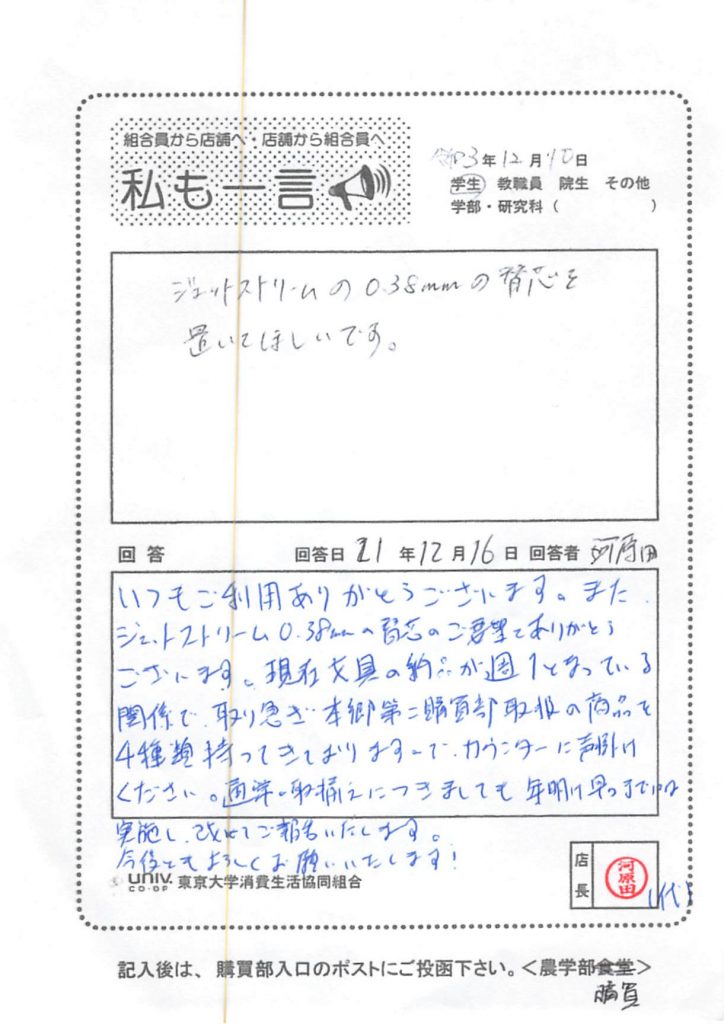 組合員から店舗へ・店舗から組合員へ
私も一言
令和3年12月10日
学生 教職員 院生 その他
学部・研究科( )
ジェットストリームの0.38mmの替芯を
置いてほしいです。
回答 回答日 21年12月16日 回答者 河原田
いつもご利用ありがとうございます。また、
ジェットストリーム0.38mmの替芯のご要望ありがとう
ございます。現在文具の納品が週1となっている
関係で、取り急ぎ本郷第二購買部取扱の商品を
4種類持ってきておりますので、カウンターに声掛け
ください。通常の取揃えにつきましても年明け早々までには
実施し、改めてご報告いたします。
今後ともよろしくお願いいたします!
univ. CO-OP 東京大学消費生活協同組合
店長 河原田 (代)
記入後は、購買部入口のポストにご投函下さい。<農学部食堂>
購買